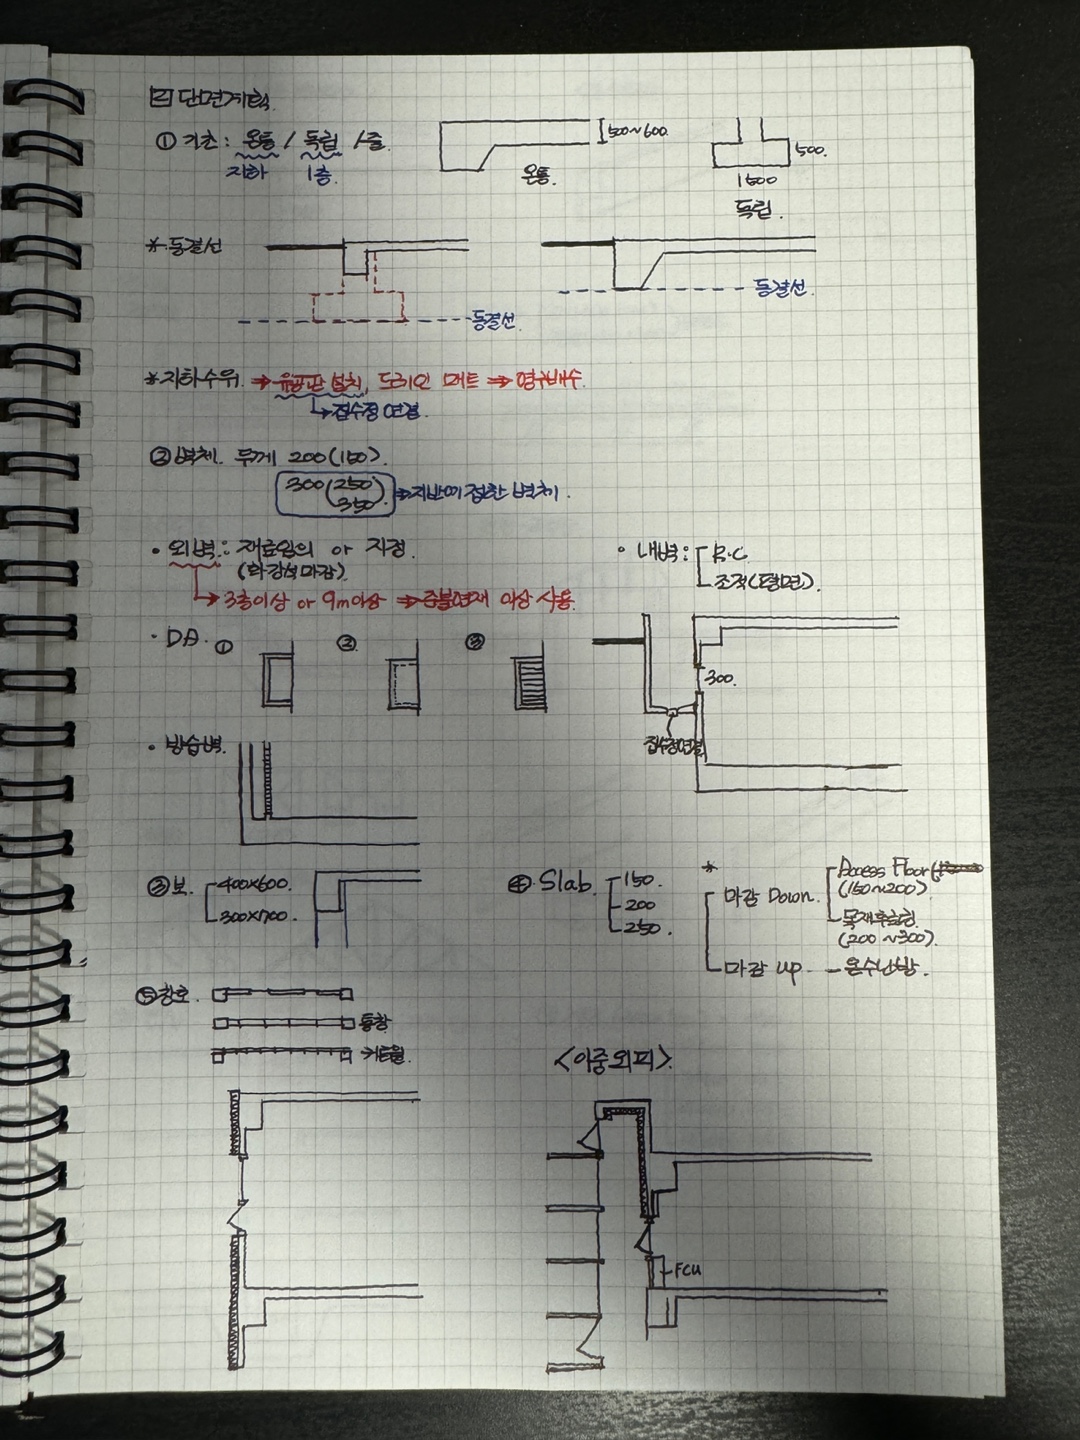 2 단면계획
① 기초 : 온통 / 독립 / 줄
지하 1층.
500~600
온통.
500.
1500
독립.
* 동결선
동결선.
동결선.
* 지하수위. → 유공판 설치, 드레인 매트 → 영구배수
↳ 집수정 연결.
② 벽체. 두께 200(150).
300(250
350) → 지반에 접한 벽체.
• 외벽 : 재료임의 or 지정.
(화강석마감).
↳ 3층이상 or 9m이상 → 준불연재 이상 사용.
• 내벽 : R.C
조적(평면).
• DA. ① ② ③
300.
집수정연결
• 방습벽.
③ 보. 400×600.
300×700.
④ Slab. 150.
200
250.
* 마감 Down. Access Floor
(150~200)
목재후로링
(200~300).
마감 up. - 온수난방.
⑤ 창호.
통창
커튼월.
<이중외피>.
FCU